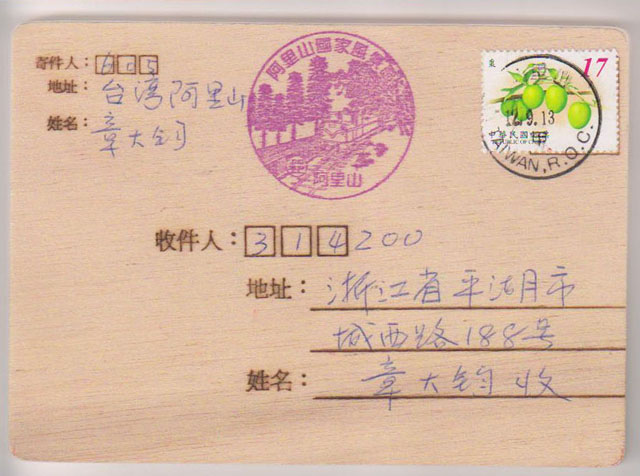 寄件人：605
地址：台湾阿里山
姓名：章大钧
阿里山國家風景
阿里山
棗 17
12.9.13
中華民國郵票
REPUBLIC OF CHINA
TAIWAN, R.O.C.
收件人：314200
地址：浙江省平湖市
城西路188号
姓名：章大钧收